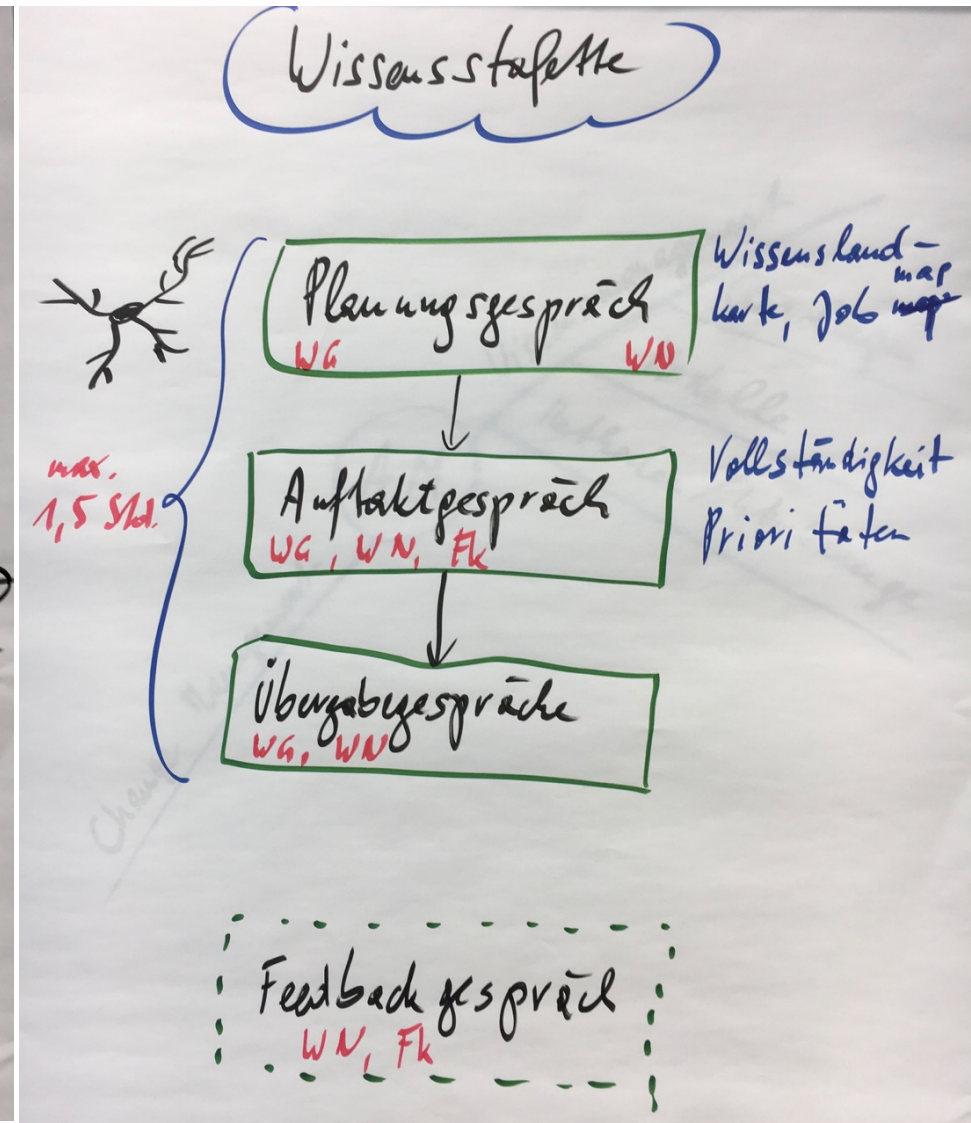 Wissensstafette
Planungsgespräch
WG WN
Wissensland-
karte, Job map
max.
1,5 Std.
Auftaktgespräch
WG, WN, Fk
Vollständigkeit
Prioritäten
Übergabegespräche
WG, WN
Feedbackgespräch
WN, Fk